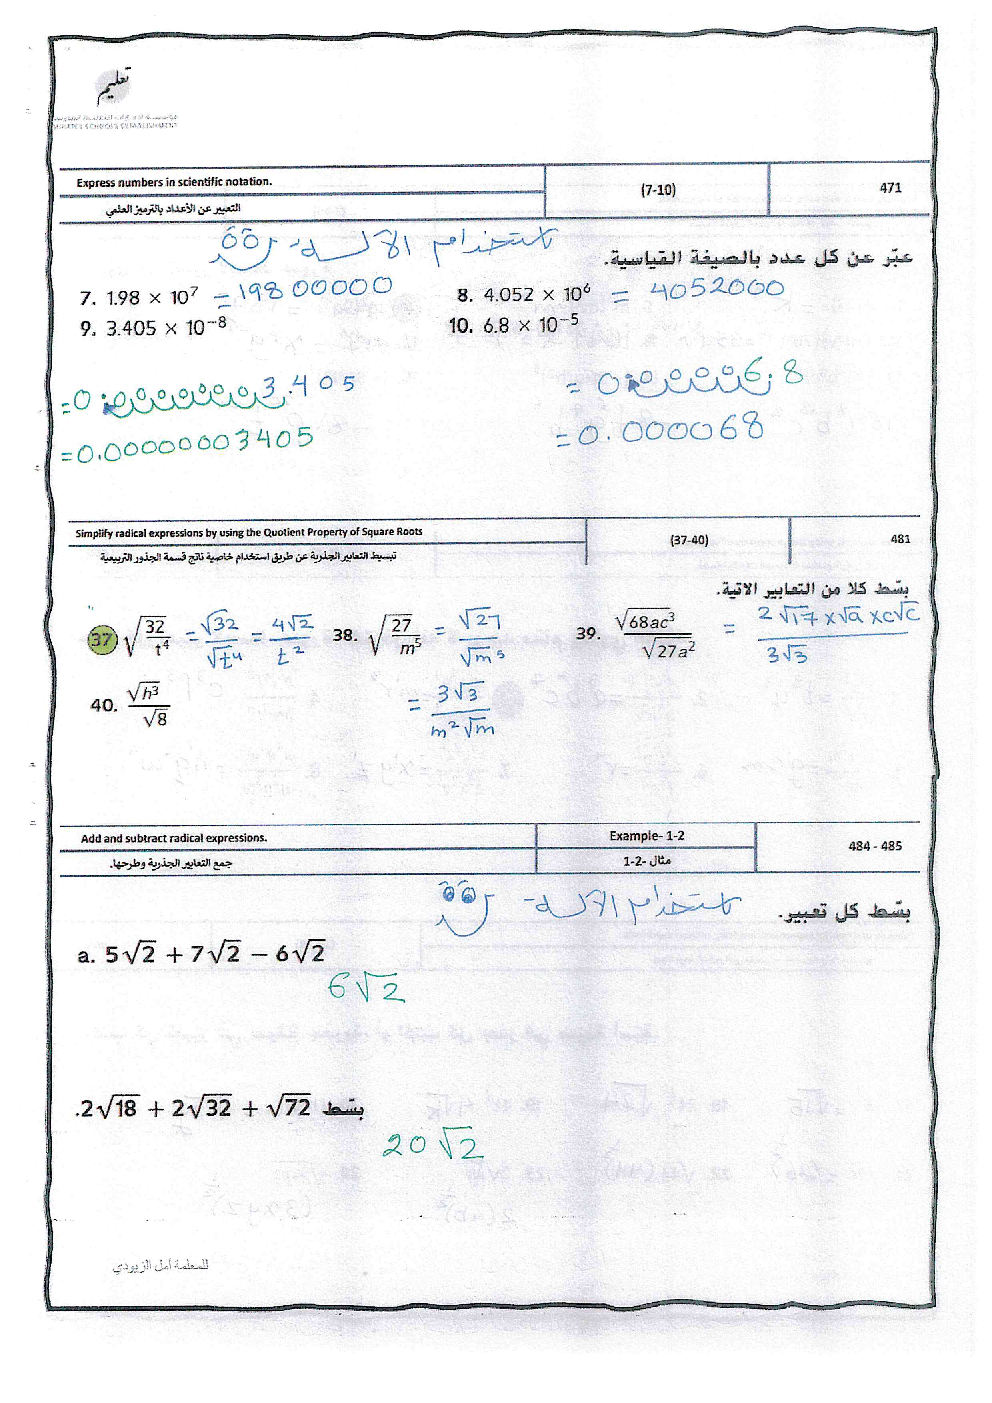 تعليم
EMIRATES SCHOOLS ESTABLISHMENT
Express numbers in scientific notation.
(7-10)
471
التعبير عن الأعداد بالترميز العلمي
باستخدام الآلة
عبّر عن كل عدد بالصيغة القياسية.
7. 1.98 × 10⁷ = 19800000
8. 4.052 × 10⁶ = 4052000
9. 3.405 × 10⁻⁸
10. 6.8 × 10⁻⁵
=0.00000003.405
=0.00006.8
=0.00000003405
=0.000068
Simplify radical expressions by using the Quotient Property of Square Roots
(37-40)
481
تبسيط التعابير الجذرية عن طريق استخدام خاصية ناتج قسمة الجذور التربيعية
بسّط كلا من التعابير الاتية.
37 √(32/t⁴) = √32/√t⁴ = 4√2/t²
38. √(27/m⁵) = √27/√m⁵
39. √68ac³/√27a² = 2√17×√a×c√c/3√3
40. √h³/√8
= 3√3/m²√m
Add and subtract radical expressions.
Example- 1-2
484 - 485
جمع التعابير الجذرية وطرحها.
مثال -2-1
باستخدام الآلة
بسّط كل تعبير.
a. 5√2 + 7√2 − 6√2
6√2
بسّط 2√18 + 2√32 + √72.
20√2
للمعلمة أمل الزيودي